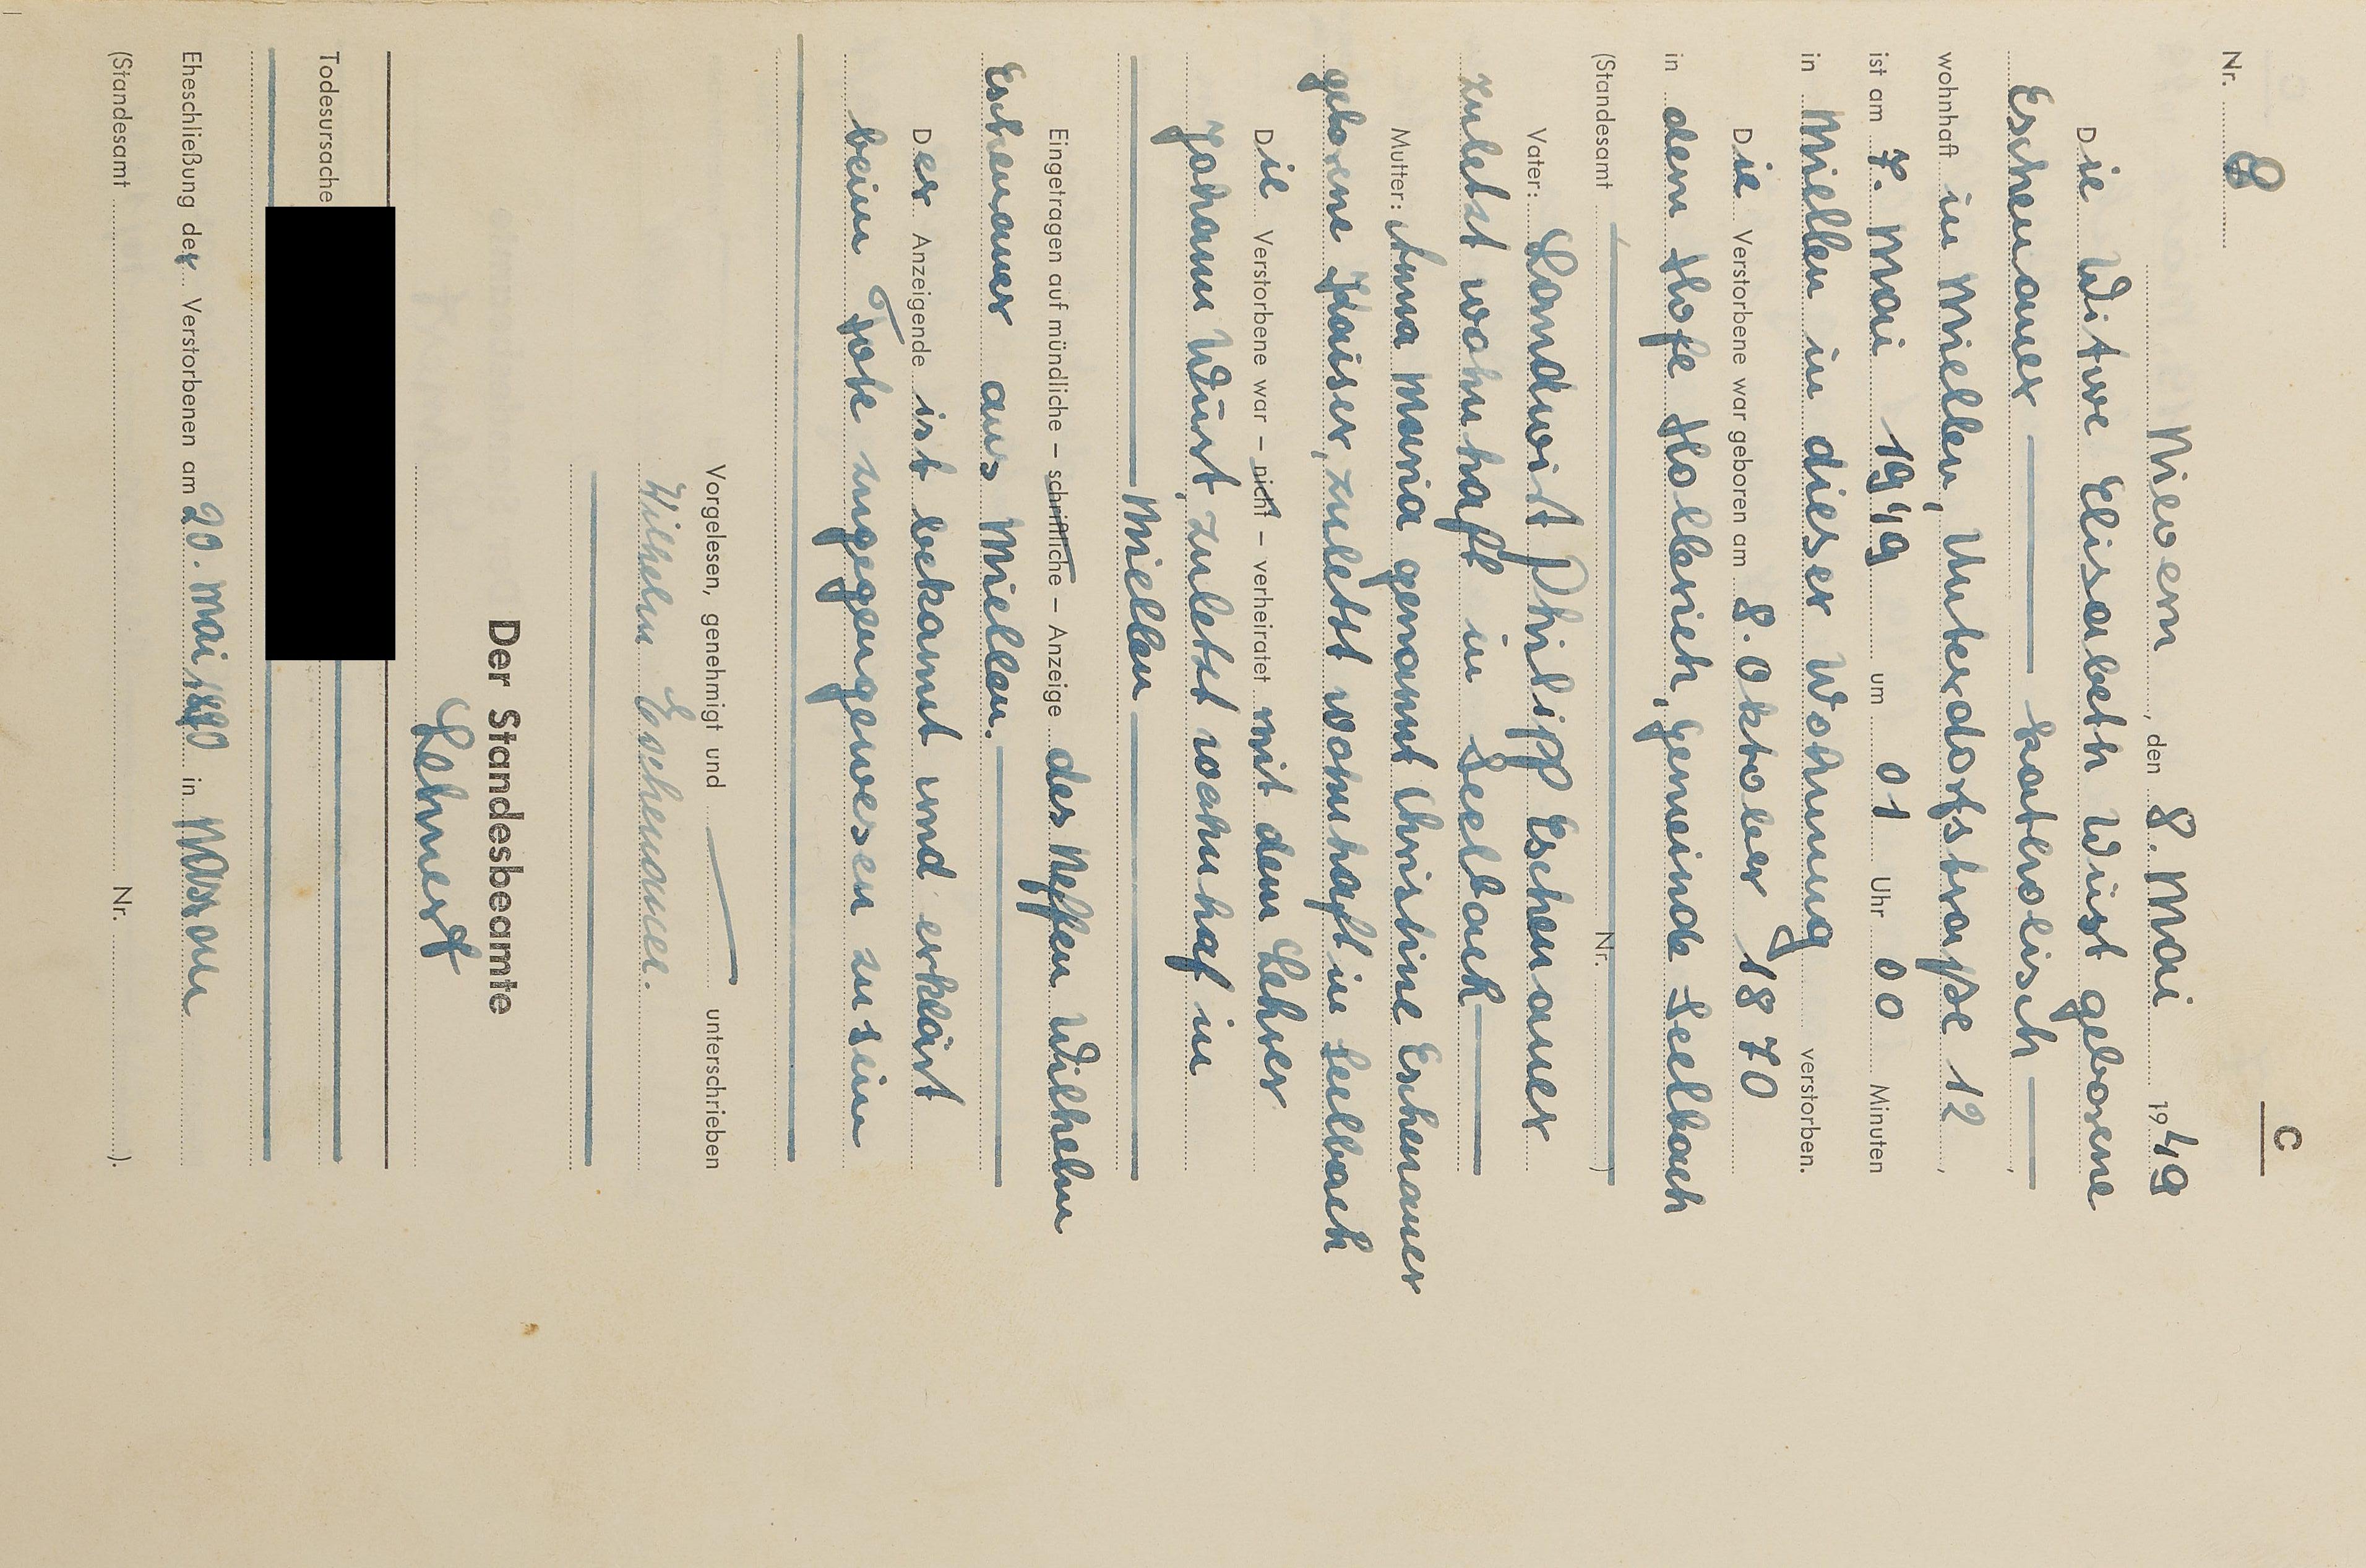 C
Nr. 8
Nievern, den 8. Mai 1949
Die Witwe Elisabeth Wüst geborene
Eschenauer katholisch,
wohnhaft in Miellen, Unterdorfstraße 12,
ist am 7. Mai 1949 um 01 Uhr 00 Minuten
in Miellen in dieser Wohnung verstorben.
Die Verstorbene war geboren am 8. Oktober 1870
in dem Hofe Hollerich, Gemeinde Seelbach
(Standesamt Nr. )
Vater: Landwirt Philipp Eschenauer
zuletzt wohnhaft in Seelbach
Mutter: Anna Maria genannt Christine Eschenauer
geborene Kaiser, zuletzt wohnhaft in Seelbach
Die Verstorbene war – nicht – verheiratet mit dem Lehrer
Johann Wüst, zuletzt wohnhaf in
Miellen
Eingetragen auf mündliche – schriftliche – Anzeige des Neffen Wilhelm
Eschenauer aus Miellen.
Der Anzeigende ist bekannt und erklärt
beim Tode zugegengewesen zu sein
Vorgelesen, genehmigt und unterschrieben
Wilhelm Eschenauer.
Der Standesbeamte
Lehnert
Todesursache
Eheschließung der Verstorbenen am 20. Mai 1890 in
(Standesamt Nr. ).